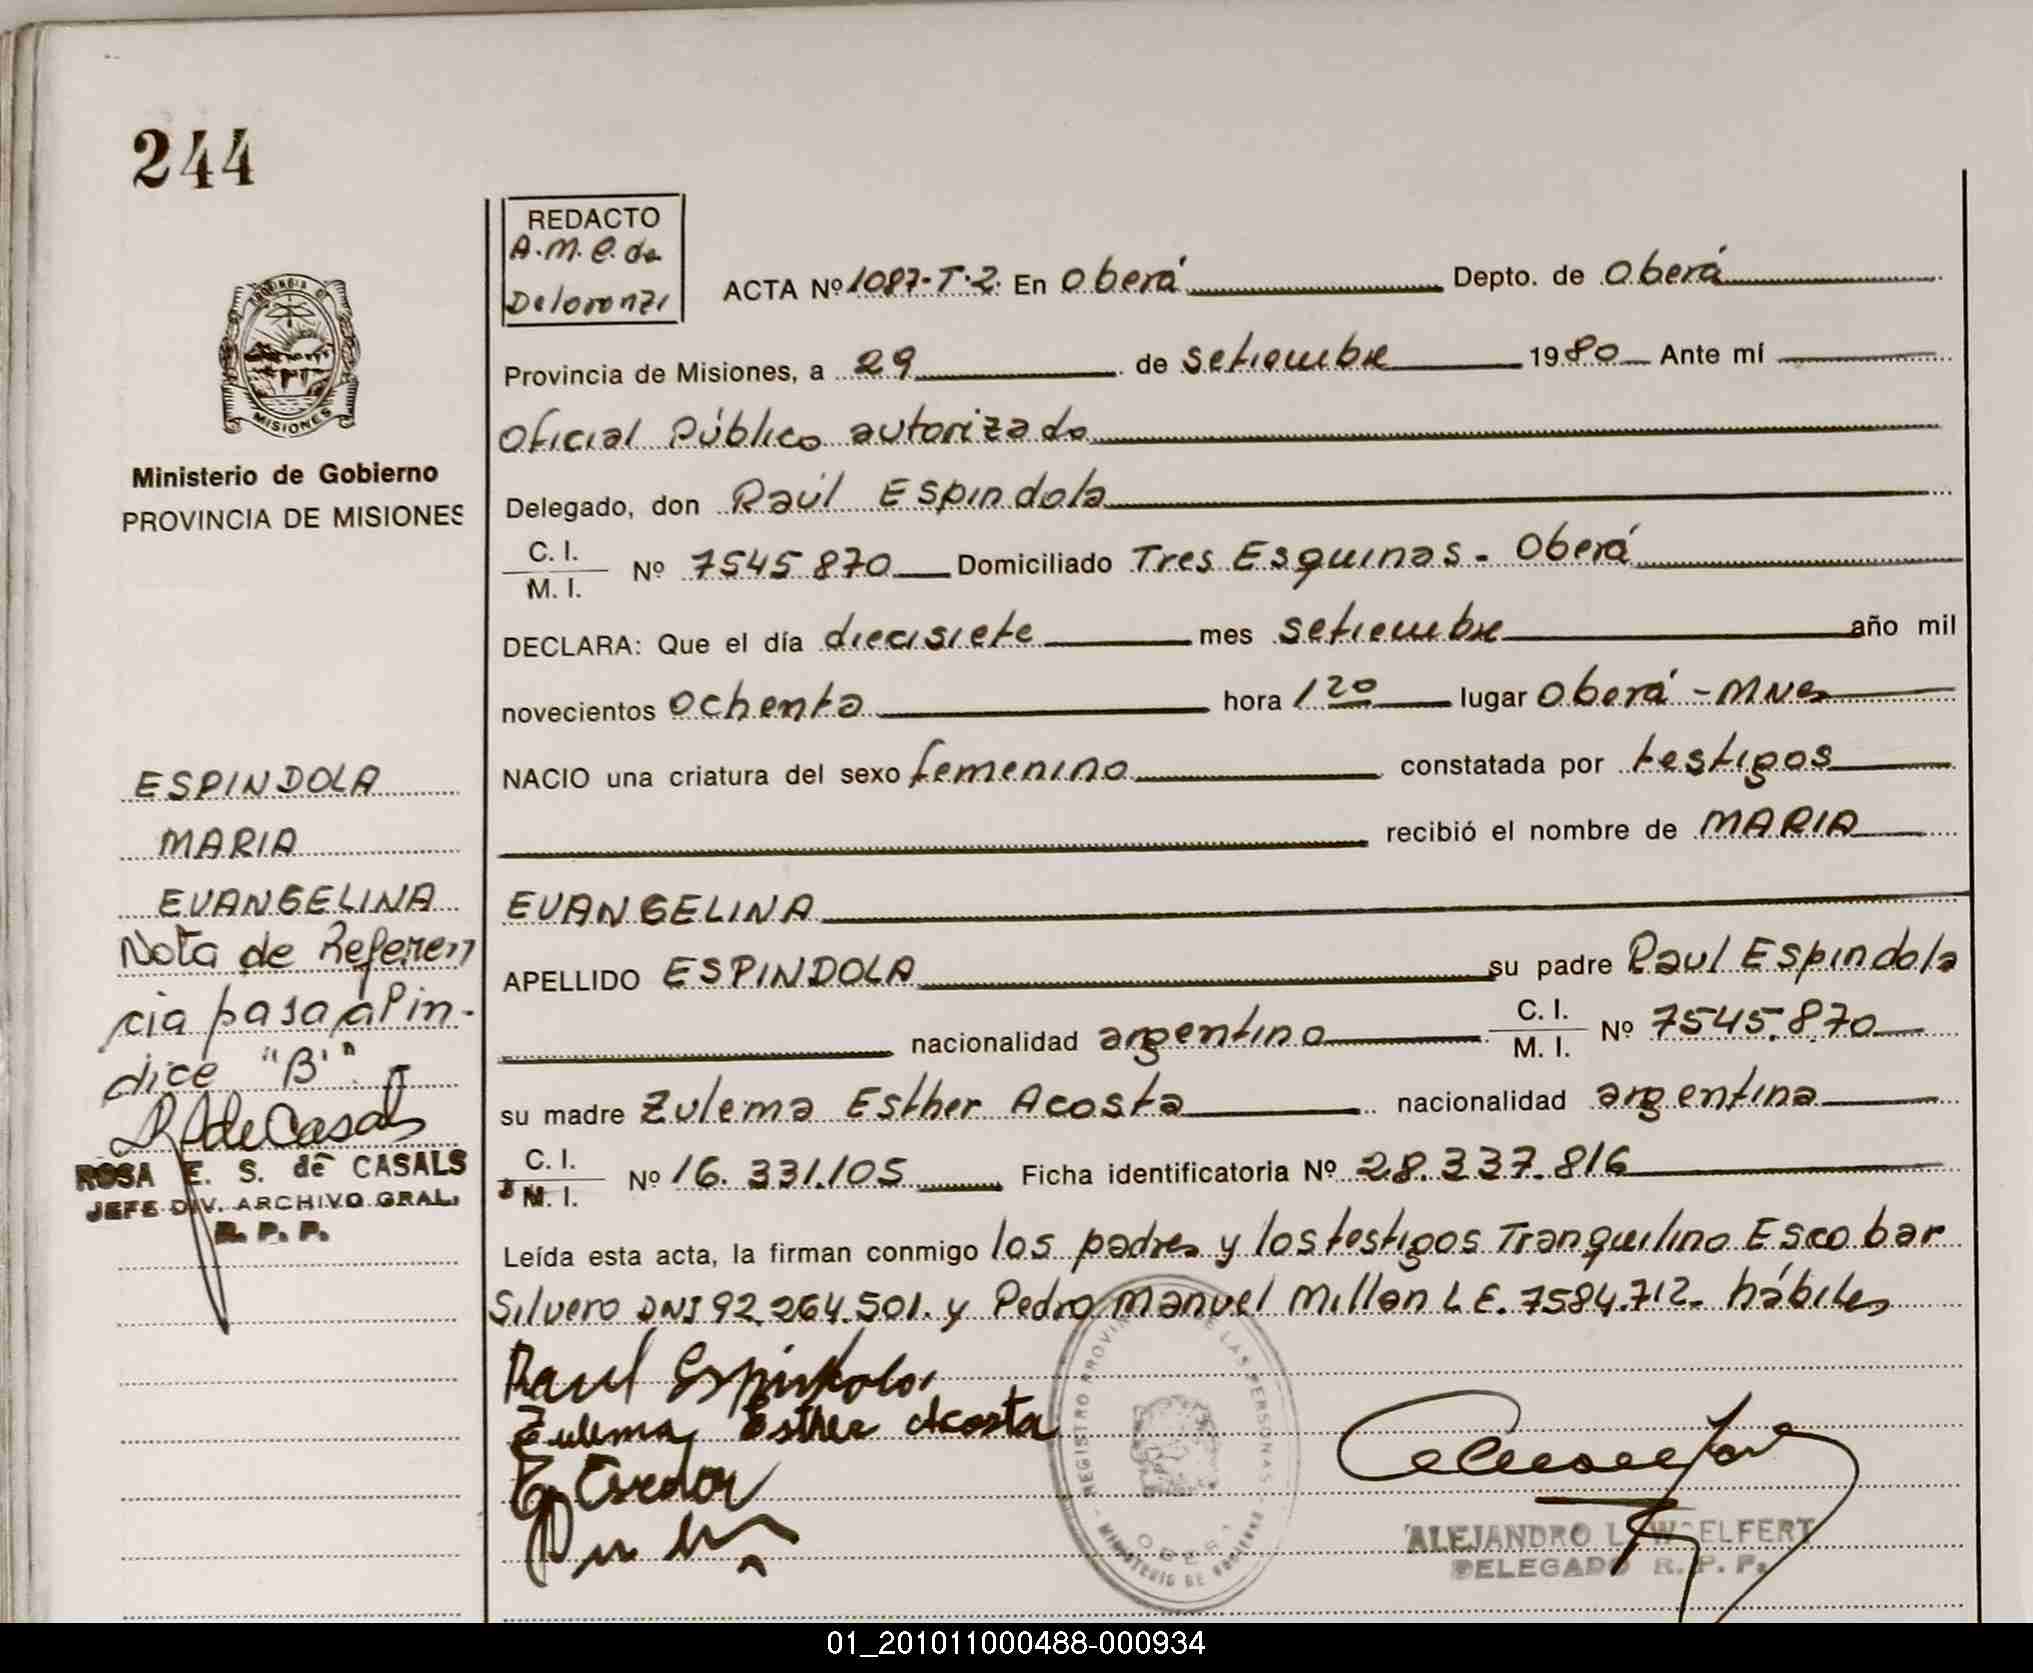 244
REDACTO
A.M.C. de
Delorenzi
ACTA Nº 1087-T-2. En Oberá Depto. de Oberá
Provincia de Misiones, a 29 de setiembre 1980 Ante mí
Oficial Público autorizado
Delegado, don Raúl Espindola
C. I.
M. I.
Nº 7545870 Domiciliado Tres Esquinas - Oberá
DECLARA: Que el día diecisiete mes setiembre año mil
novecientos ochenta hora 1 20 lugar Oberá - Mnes
NACIO una criatura del sexo femenino constatada por testigos
recibió el nombre de MARIA
EVANGELINA
APELLIDO ESPINDOLA su padre Raul Espindola
nacionalidad argentino C. I.
M. I. Nº 7545.870
su madre Zulema Esther Acosta nacionalidad argentina
C. I.
M. I.
Nº 16.331.105 Ficha identificatoria Nº 28.337.816
Leída esta acta, la firman conmigo los padres y los testigos Tranquilino Escobar
Silvero DNI 92.264.501. y Pedro Manuel Millan L E. 7584.712. hábiles
Raul Espindola
Zulema Esther Acosta
REGISTRO PROVINCIAL DE LAS PERSONAS
MINISTERIO DE GOBIERNO
OBERA
ALEJANDRO L. WOELFERT
DELEGADO R. P. P.
PROVINCIA DE
MISIONES
Ministerio de Gobierno
PROVINCIA DE MISIONES
ESPINDOLA
MARIA
EVANGELINA
Nota de Referen
cia pasa apin-
dice "B".
R de Casals
ROSA E. S. de CASALS
JEFE DIV. ARCHIVO GRAL.
R. P. P.
01_201011000488-000934